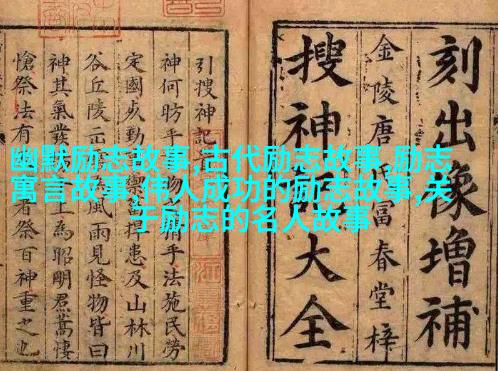 幽默励志故事,古代励志故事,励志
寓言故事,伟人成功的励志故事,关
于励志的名人故事
刻出像增補
金陵唐富春堂梓
搜神大全
引搜神記
神何昉乎手法施民勞
定國勤禦捍患及山林川
谷丘陵示風雨見怪物皆曰
神其氣發上為昭明焄蒿悽
愴祭法有者祭百神重之也